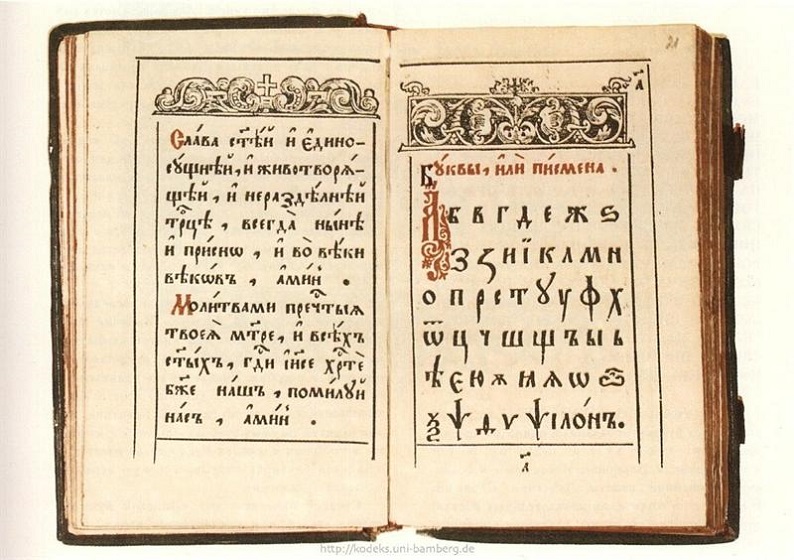 Сла́ва ст҃ѣ́й и҆ є҆дино-
сꙋ́щнѣй, и҆ животворѧ́-
щѣй, и҆ нераздѣ́лнѣй
трⷪ҇цѣ, всегда̀ ны́нѣ
и҆ при́снѡ, и҆ во вѣ́ки
вѣкѡ́въ, а҆ми́нь.
Моли́твами пречⷭ҇тыѧ
твоеѧ̀ мт҃ре, и҆ всѣ́хъ
ст҃ы́хъ, гдⷭ҇и і҆и҃се хрⷭ҇тѐ
бж҃е на́шъ, поми́лꙋй
на́съ, а҆ми́нь.
21
а҃
Бꙋ́квы, и҆лѝ пи́смена.
А б в г д е ж ѕ
з ꙁ и ї к л м н
о п р с т ꙋ у ф х
ѿ ц ч ш щ ъ ы ь
ѣ є ю ж н ѧ ѡ ѽ
ѯ ѱ ѳ ѵ ѱїло́нъ.
а҃
http://kodeks.uni-bamberg.de